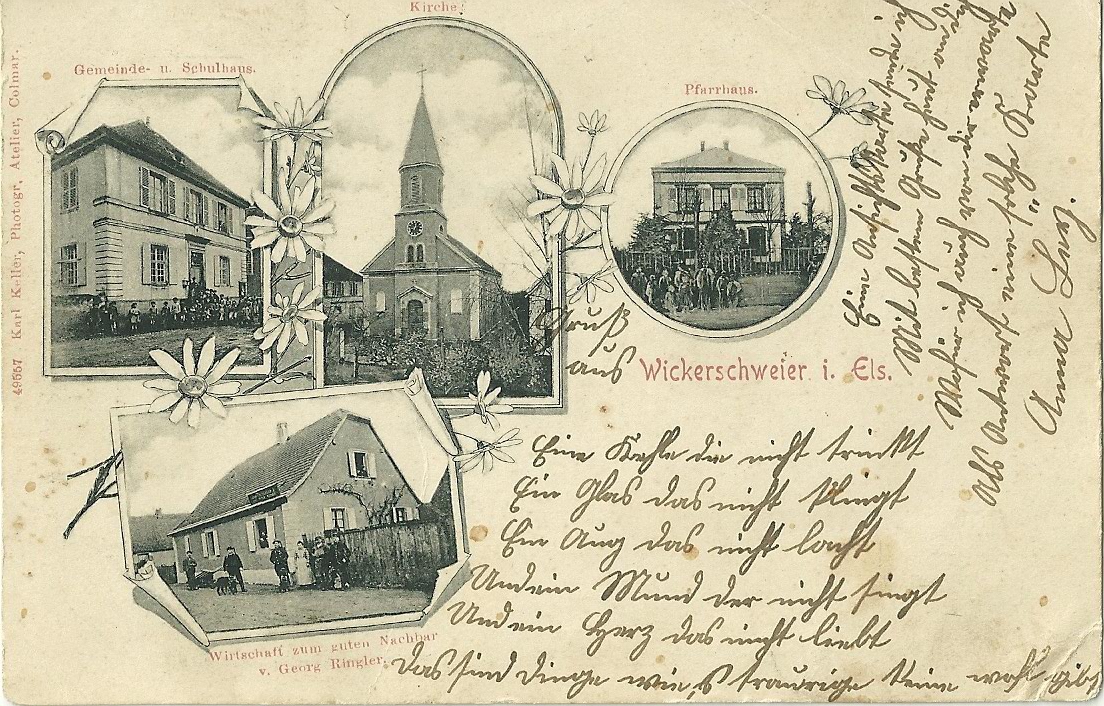 Kirche.
Gemeinde- u. Schulhaus.
Pfarrhaus.
49557 Karl Keller, Photogr. Atelier, Colmar.
Gruß
aus
Wickerschweier i. Els.
Wirtschaft zum guten Nachbar
v. Georg Ringler.
Eine Kehle die nicht trinkt
Ein Glas das nicht klingt
Ein Aug das nicht lacht
Und ein Mund der nicht singt
Und ein Herz das nicht liebt
Das sind Dinge wie's traurige keine wohl gibt
Eine Ansichtskarte sende ich
Mit bestem Gruße heut an dich
Wofür ich auch von dir erwarte
Als Antwort eine solche Karte
Anna